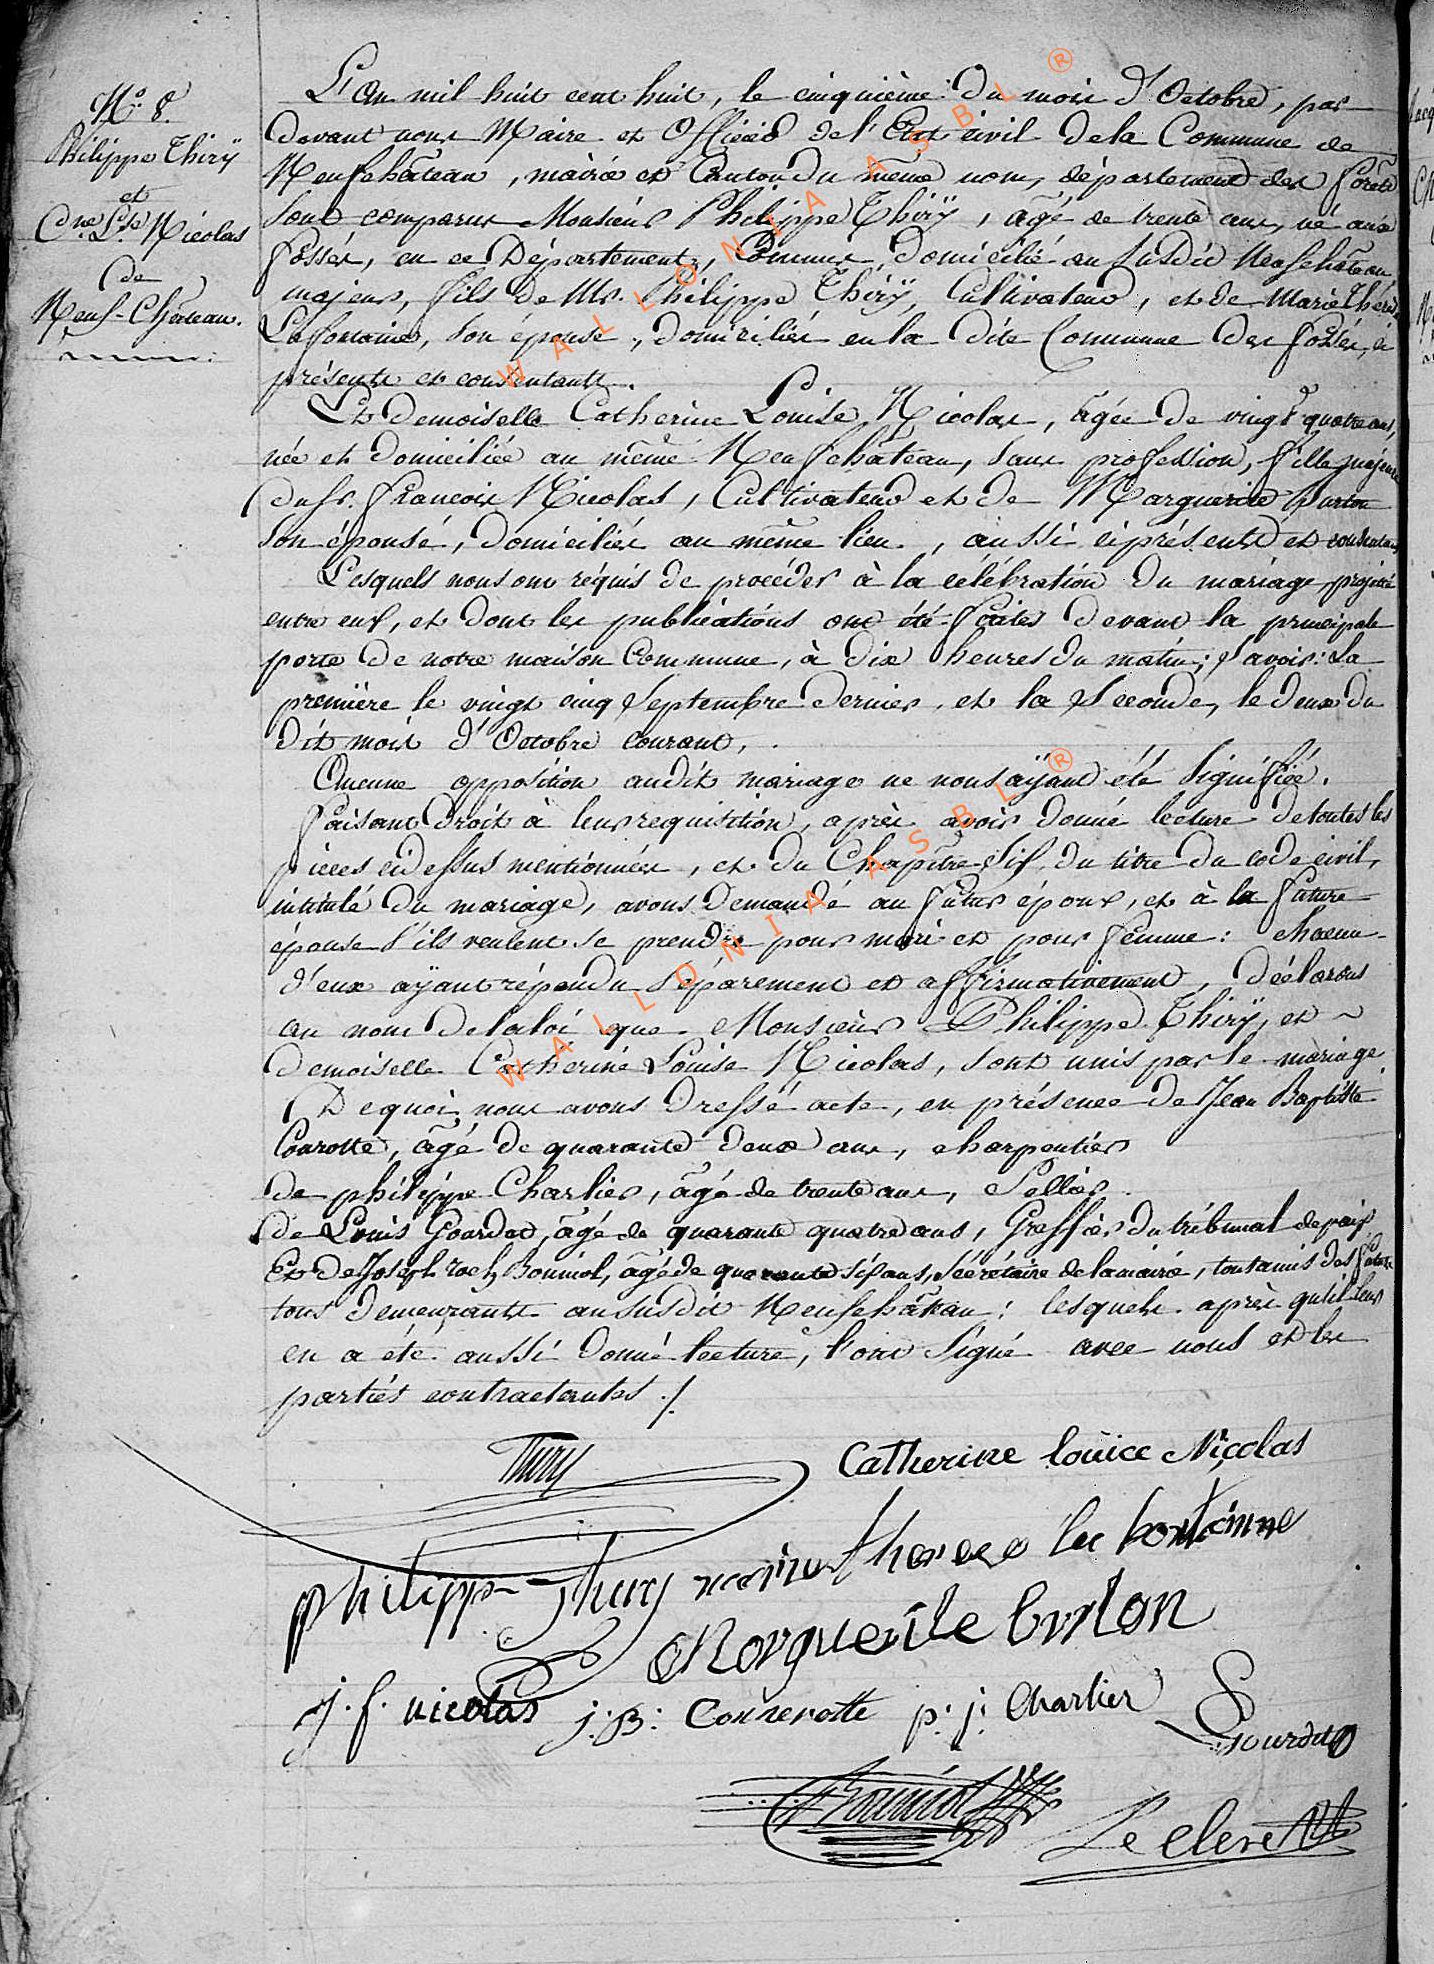 N.° 8.
Philippe Thirÿ
et
C.ne L.se Nicolas
de
Neuf-Château.
L'an mil huit cent huit, le cinquième du mois d'Octobre, par
devant nous Maire et Officier de l'Etat civil de la Commune de
Neufchâteau, mairie et Canton du même nom, département des forêts
sont comparus Monsieur Philippe Thirÿ, âgé de trente ans, né aux
fossés, en ce Département, Domicilié au susdit Neufchâteau
majeur, fils de Mr. Philippe Thirÿ, Cultivateur, et de Marie Thérèse
Lafontaine, son épouse, domiciliés en la dite Commune des fossés, ci
présents et consentants.
Et Demoiselle Catherine Louise Nicolas, âgée de vingt quatre ans,
née et domiciliée au même Neufchâteau, sans profession, fille majeure
du Sr. François Nicolas, Cultivateur et de Marguerite burton
son épouse, domiciliés au même lieu, aussi ci présents et consentans
Lesquels nous ont réquis de procéder à la célébration du mariage projetté
entre eux, et dont les publications ont été faites devant la principale
porte de notre maison Commune, à dix heures du matin; savoir: La
première le vingt cinq septembre dernier, et la seconde, le deux du
dit mois d'Octobre courant,
Aucune opposition audit mariage ne nous aÿant été signifiée.
faisant droit à leur requisition, après avoir donné lecture de toutes les
pièces cidessus mentionnées, et du Chapître Six du titre du code civil,
intitulé du mariage, avons demandé au futur époux, et à la future
épouse s'ils veulent se prendre pour mari et pour femme: chacun
d'eux aÿant répondu séparement et affirmativement, déclarons
au nom de la loi que Monsieur Philippe Thirÿ, et ~
demoiselle Catherine Louise Nicolas, sont unis par le mariage
De quoi nous avons dressé acte, en présence de Jean Baptiste
Courotte, âgé de quarante deux ans, charpentier
de philippe Charlier, âgé de trente ans, Sellier
de Louis Gourdet, âgé de quarante quatre ans, Greffier du tribunal de paix
Et de Joseph roch Bonniol, âgé de quarante six ans, sécrétaire de la mairie, tout amis des futurs
tous demeurants au susdit Neufchâteau: lesquels après qu'il leur
en a été aussi donné lecture, l'ont signé avec nous et les
parties contractantes ./.
Thiry
Catherine louice Nicolas
philipp Thiry
marie therese la fontainne
Marguerite burton
j. f. nicolas
j: B: Couverotte
p: j: Charlier
Bonniol
Le clerc
WALLONIA ASBL ®
WALLONIA ASBL ®